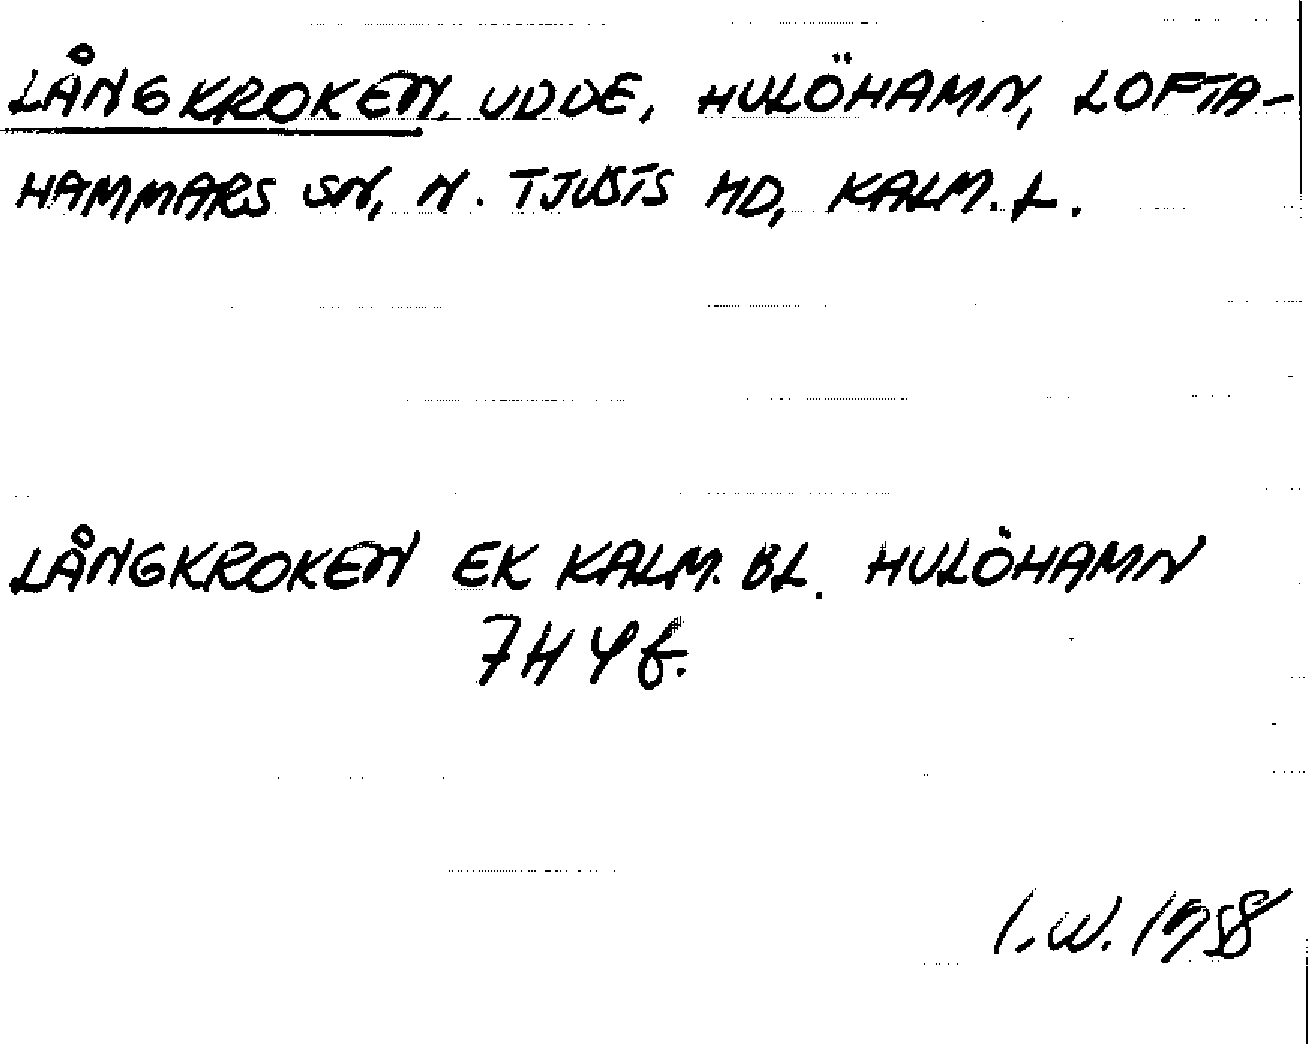 LÅNGKROKEN. UDDE, HULÖHAMN, LOFTA-
HAMMARS SN, N. TJUSTS HD, KALM. L.
LÅNGKROKEN EK KALM. BL. HULÖHAMN
7H4f.
I.W. 1958